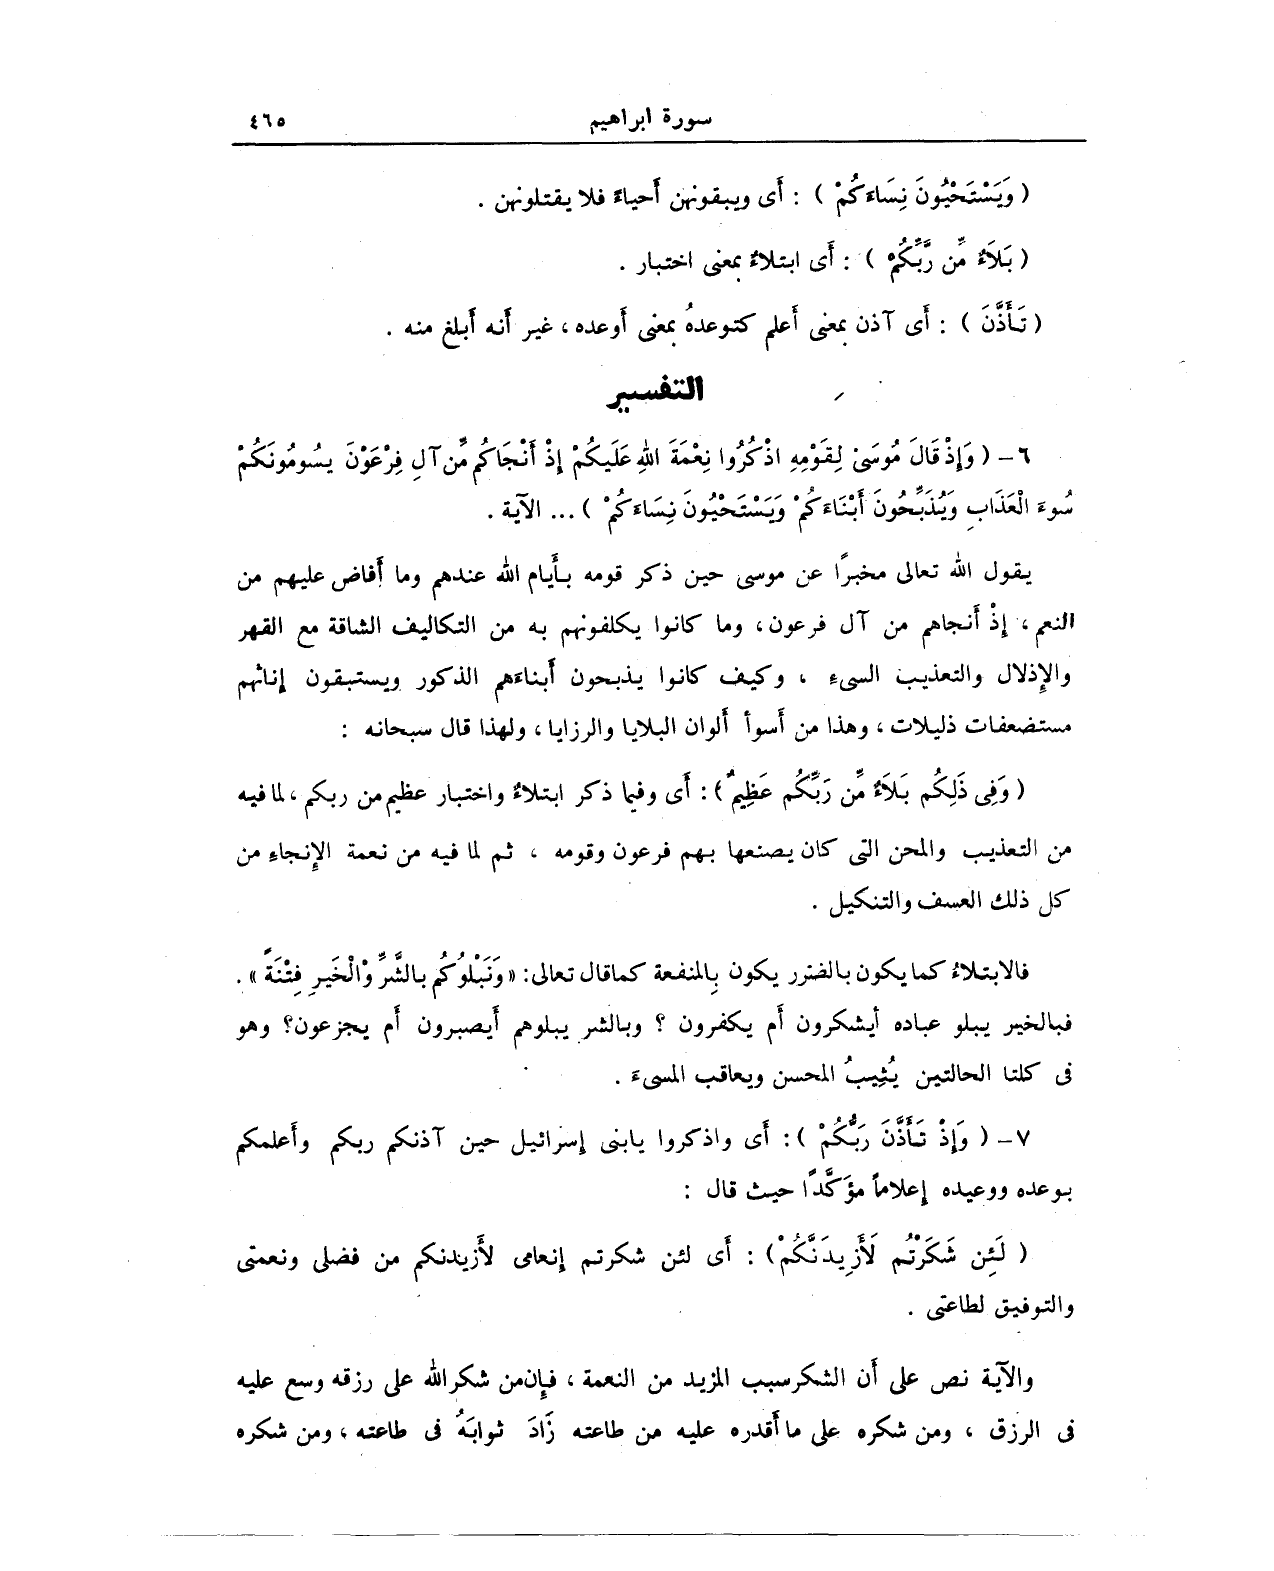 سورة ابراهيم ٤٦٥
( وَيَسْتَحْيُونَ نِسَاءَكُمْ ) : أَى ويبقونهن أَحياءً فلا يقتلونهن .
( بَلَاءٌ مِّن رَّبِّكُمْ ) : أَى ابتلاءٌ بمعنى اختبار .
( تَأَذَّنَ ) : أَى آذن بمعنى أَعلم كتوعدهُ بمعنى أَوعده ، غير أَنه أَبلغ منه .
التفسير
٦ – ( وَإِذْ قَالَ مُوسَىٰ لِقَوْمِهِ اذْكُرُوا نِعْمَةَ اللهِ عَلَيْكُمْ إِذْ أَنْجَاكُم مِّن آلِ فِرْعَوْنَ يَسُومُونَكُمْ
سُوءَ الْعَذَابِ وَيُذَبِّحُونَ أَبْنَاءَكُمْ وَيَسْتَحْيُونَ نِسَاءَكُمْ ) ... الآية .
يقول الله تعالى مخبرًا عن موسى حين ذكر قومه بأَيام الله عندهم وما أَفاض عليهم من
النعم ، إِذْ أَنجاهم من آل فرعون ، وما كانوا يكلفونهم به من التكاليف الشاقة مع القهر
والإِذلال والتعذيب السىء ، وكيف كانوا يذبحون أَبناءَهم الذكور ويستبقون إِناثهم
مستضعفات ذليلات ، وهذا من أَسوأ أَلوان البلايا والرزايا ، ولهذا قال سبحانه :
( وَفِى ذَلِكُم بَلَاءٌ مِّن رَبِّكُم عَظِيمٌ ) : أَى وفيما ذكر ابتلاءٌ واختبار عظيم من ربكم ، لما فيه
من التعذيب والمحن التى كان يصنعها بهم فرعون وقومه ، ثم لما فيه من نعمة الإِنجاءِ من
كل ذلك العسف والتنكيل .
فالابتلاءُ كما يكون بالضرر يكون بِالمنفعة كما قال تعالى : « وَنَبْلُوُكُم بالشَّرِّ وْالْخَيرِ فِتْنَةً » .
فبالخير يبلو عباده أَيشكرون أَم يكفرون ؟ وبالشر يبلوهم أَيصبرون أَم يجزعون؟ وهو
فى كلتا الحالتين يُثِيبُ المحسن ويعاقب المسىءَ .
٧ – ( وَإِذْ تَأَذَّنَ رَبُّكُمْ ) : أَى واذكروا يابنى إِسرائيل حين آذنكم ربكم وأَعلمكم
بوعده ووعيده إِعلاماً مؤَكَّدًا حيث قال :
( لَئِن شَكَرْتُم لَأَزِيدَنَّكُمْ ) : أَى لئن شكرتم إِنعامى لأَزيدنكم من فضلى ونعمتى
والتوفيق لطاعتى .
والآية نص على أَن الشكر سبب المزيد من النعمة ، فإِن من شكر الله على رزقه وسع عليه
فى الرزق ، ومن شكره على ما أَقدره عليه من طاعته زَادَ ثوابَهُ فى طاعته ، ومن شكره